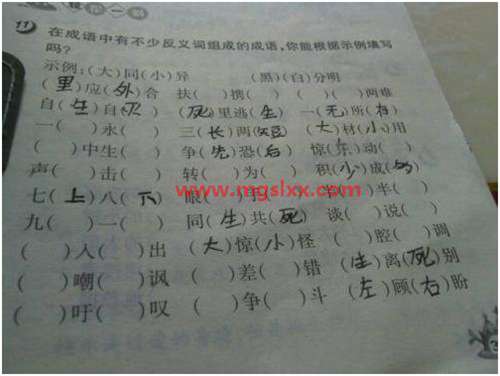 11 在成语中有不少反义词组成的成语,你能根据示例填写
吗?
示例:(大)同(小)异 (黑)(白)分明
(里)应(外)合 扶( )携( ) ( )( )两难
自(生)自(灭) (死)里逃(生) 一(无)所(有)
一( )永( ) 三(长)两(短) (大)材(小)用
( )中生( ) 争(先)恐(后) 惊( )动( )
声( )击( ) 转( )为( ) 积(小)成( )
www.mgslxx.com
七(上)八(下) 眼( )手( ) 半( )半( )
九( )一( ) 同(生)共(死) 谈( )说( )
( )入( )出 (大)惊(小)怪 ( )腔( )调
( )嘲( )讽 ( )差( )错 (生)离(死)别
( )吁( )叹 ( )争( )斗 (左)顾(右)盼